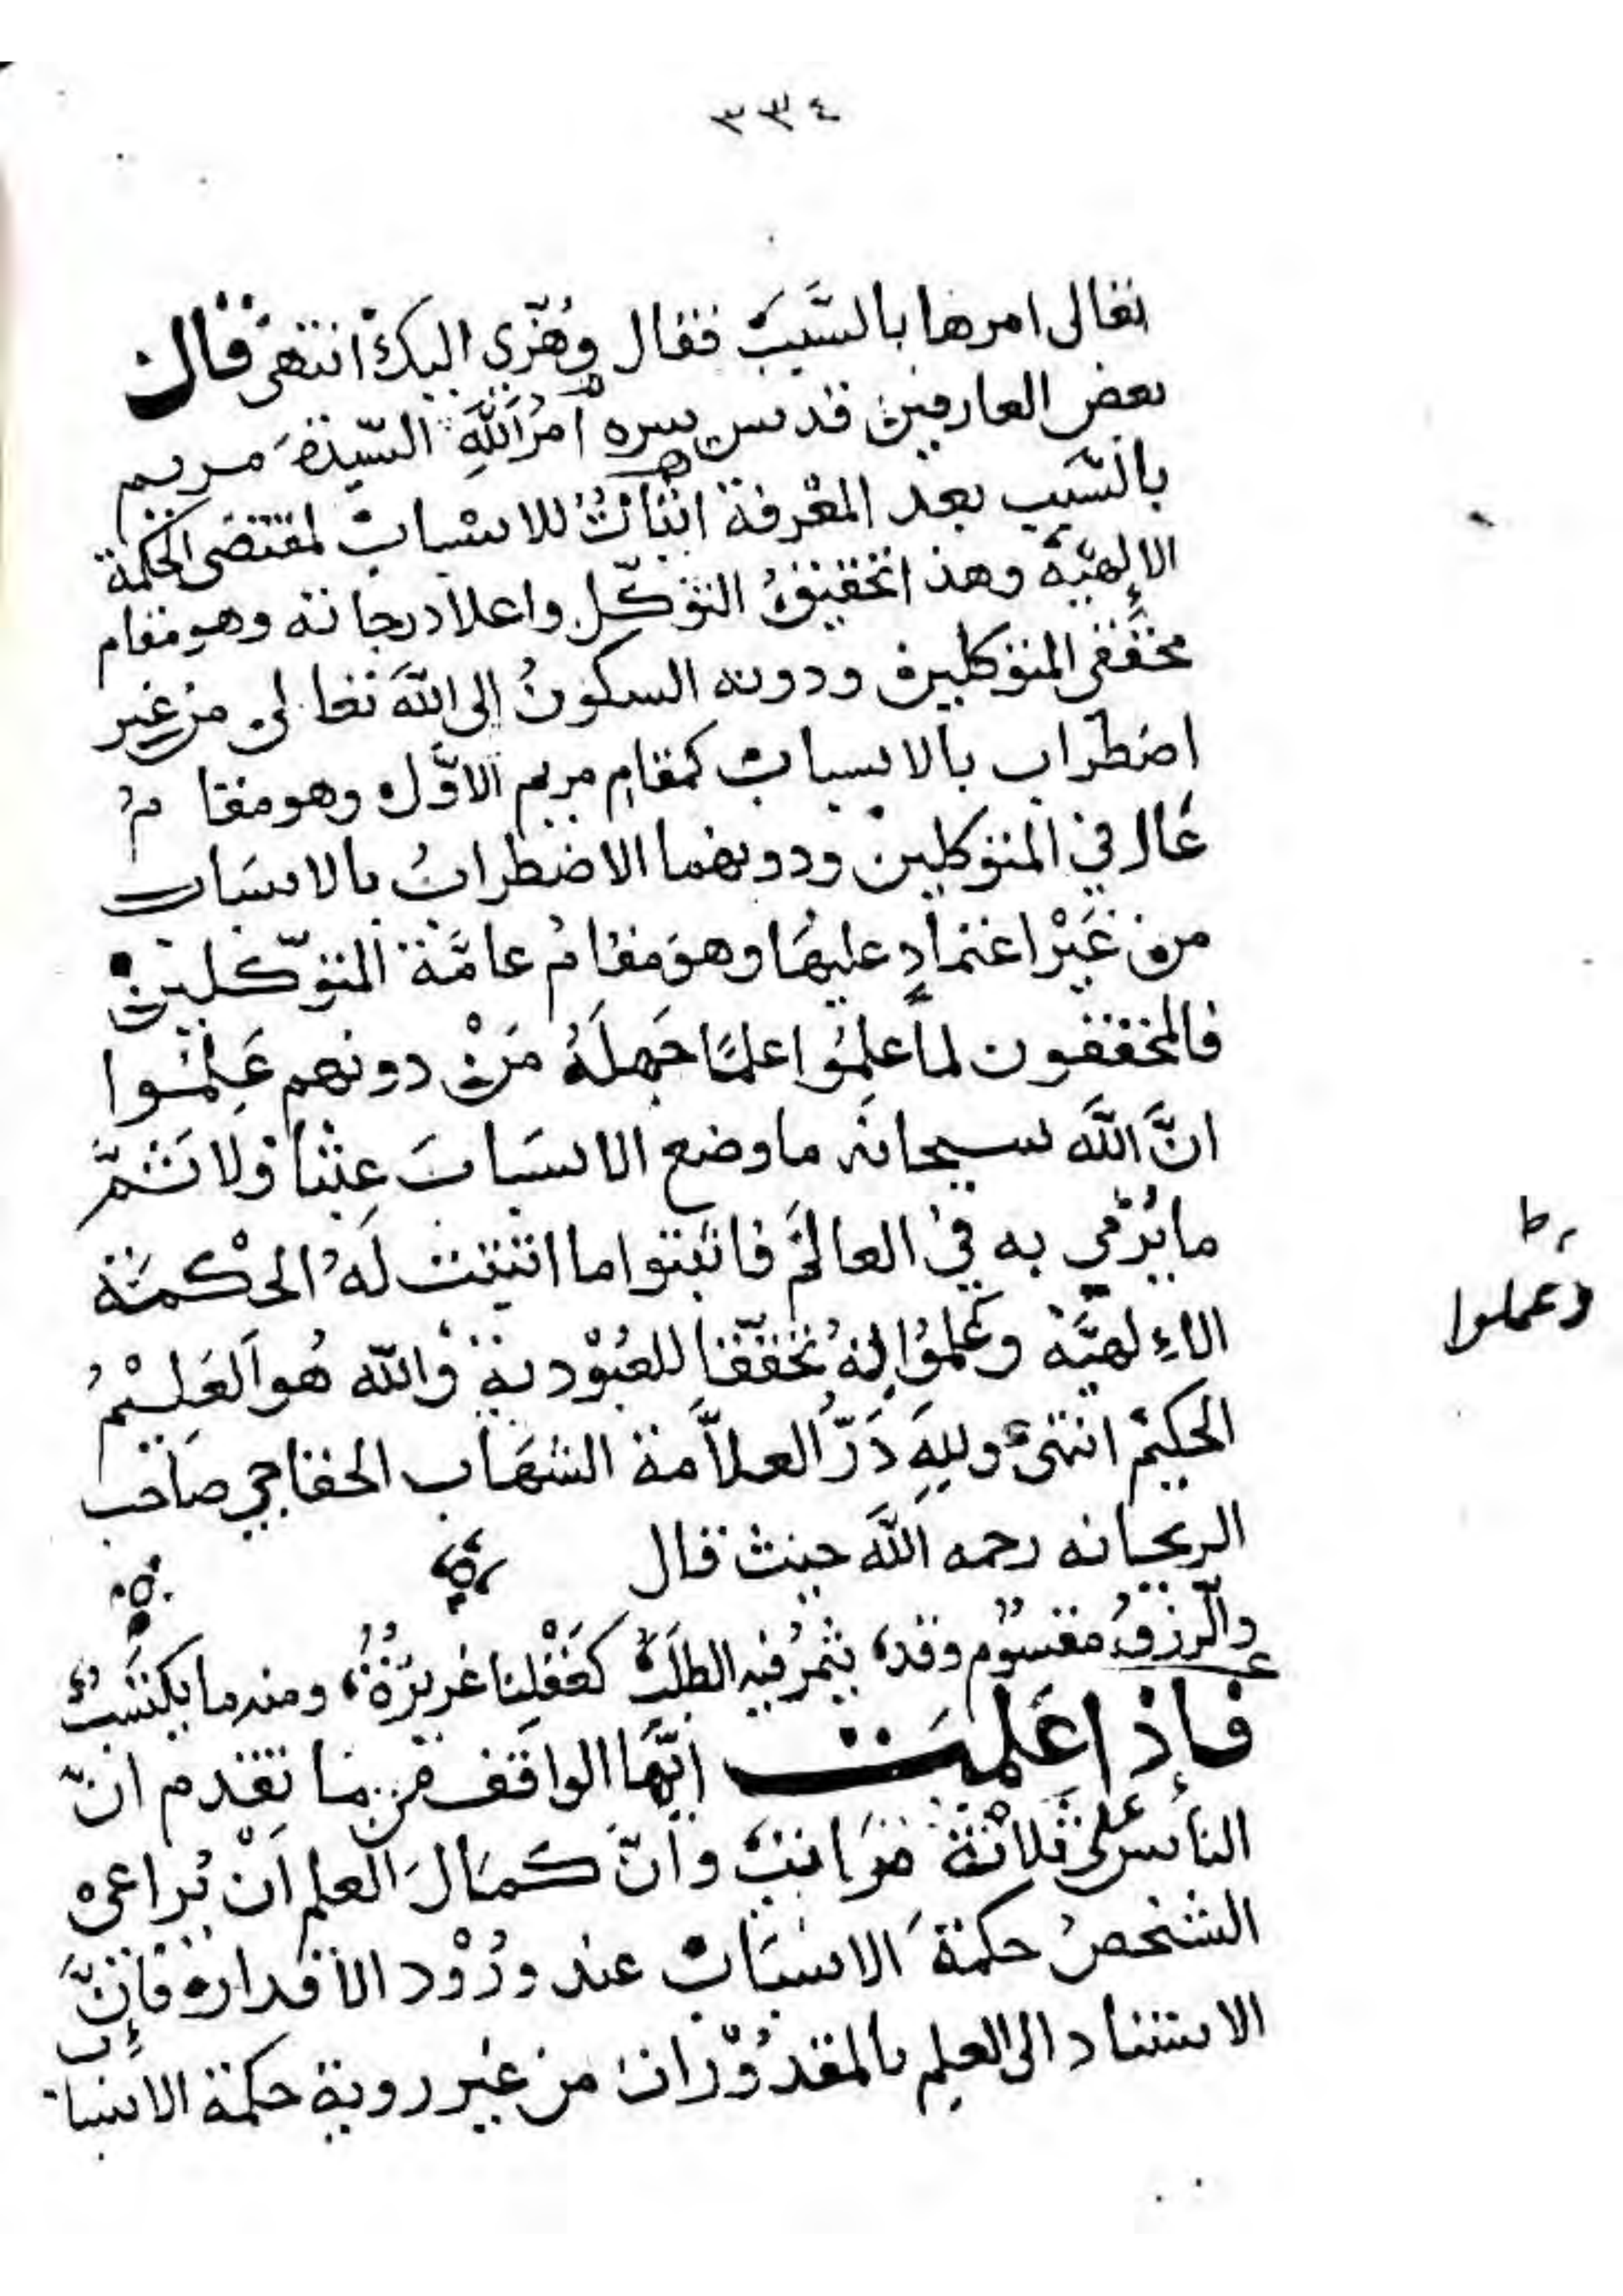 ٣٣٤
تعالى امرها بالسَّبَب فقال وهُزّي اليك انتهى قال
بعض العارفين قدس سره امرُ اللّهِ السّيدةَ مريم
بالسّبب بعد المعْرفة اثباتٌ للاسباب لمقتضى الحكمة
الإلهيّة وهذا تحقيقُ التوكّل واعلا درجاته وهو مقام
محقّقى المتوكلين ودونه السكونُ إلى اللّه تعالى من غير
اضطراب بالاسباب كمقام مريم الاوّل وهو مقامُ
عَال في المتوكلين ودونهما الاضطرابُ بالاسبَاب
من غَيْر اعتمادٍ عليهَا وهوَ مقامُ عامَّة المتوّكلين
فالمحققون لما علِمُوا علمًا جَهِلَهُ مَنْ دونهم عَلِمُوا
انَّ اللّه سبحانَه ما وضع الاسبَابَ عبثا وَلا ثَمَّ
ما يُرْمي به في العالَم فاثبتوا ما اثبتت لَهُ الحْكمَة
الإلهيَّة وعَملُوا لهُ تحقّقا للعُبُوْدية وَاللّه هُو العَلِيْمُ
الحكيمُ انتهىَ وللهِ دَرُّ العلاَّمة الشهَاب الخفاجي صاحب
الريحانه رحمه اللَّه حيث قال
والرّزقُ مقسُوم وقد، يثمرُ فيه الطلَبُ كغَفْلِنا غريزةٌ، ومنه ما يكتسَبُ
فإذا عَلمتَ ايّهَا الواقف من مَا تقدم انّ
الناس على ثلاثَة مَراتبَ وَانّ كمَالَ العلم اَنْ يُراعى
الشخصُ حكمَةَ الاسبَاب عند ورُوْد الاقدار، فإنَّ
الاستناد الى العلم بالمقدُوْرات من غير روية حكمة الاسباب
وعملوا